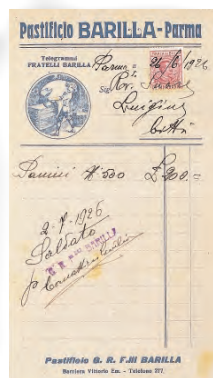 Pastificio BARILLA - Parma
Telegrammi
FRATELLI BARILLA
Parma = 26/6/1926
Sig.
Luigina
città
Panini N° 500 £ 200=
2-7-1926
Saldato
G. R. F.lli BARILLA
p
Pastificio G. R. F.lli BARILLA
Barriera Vittorio Em. - Telefono 277